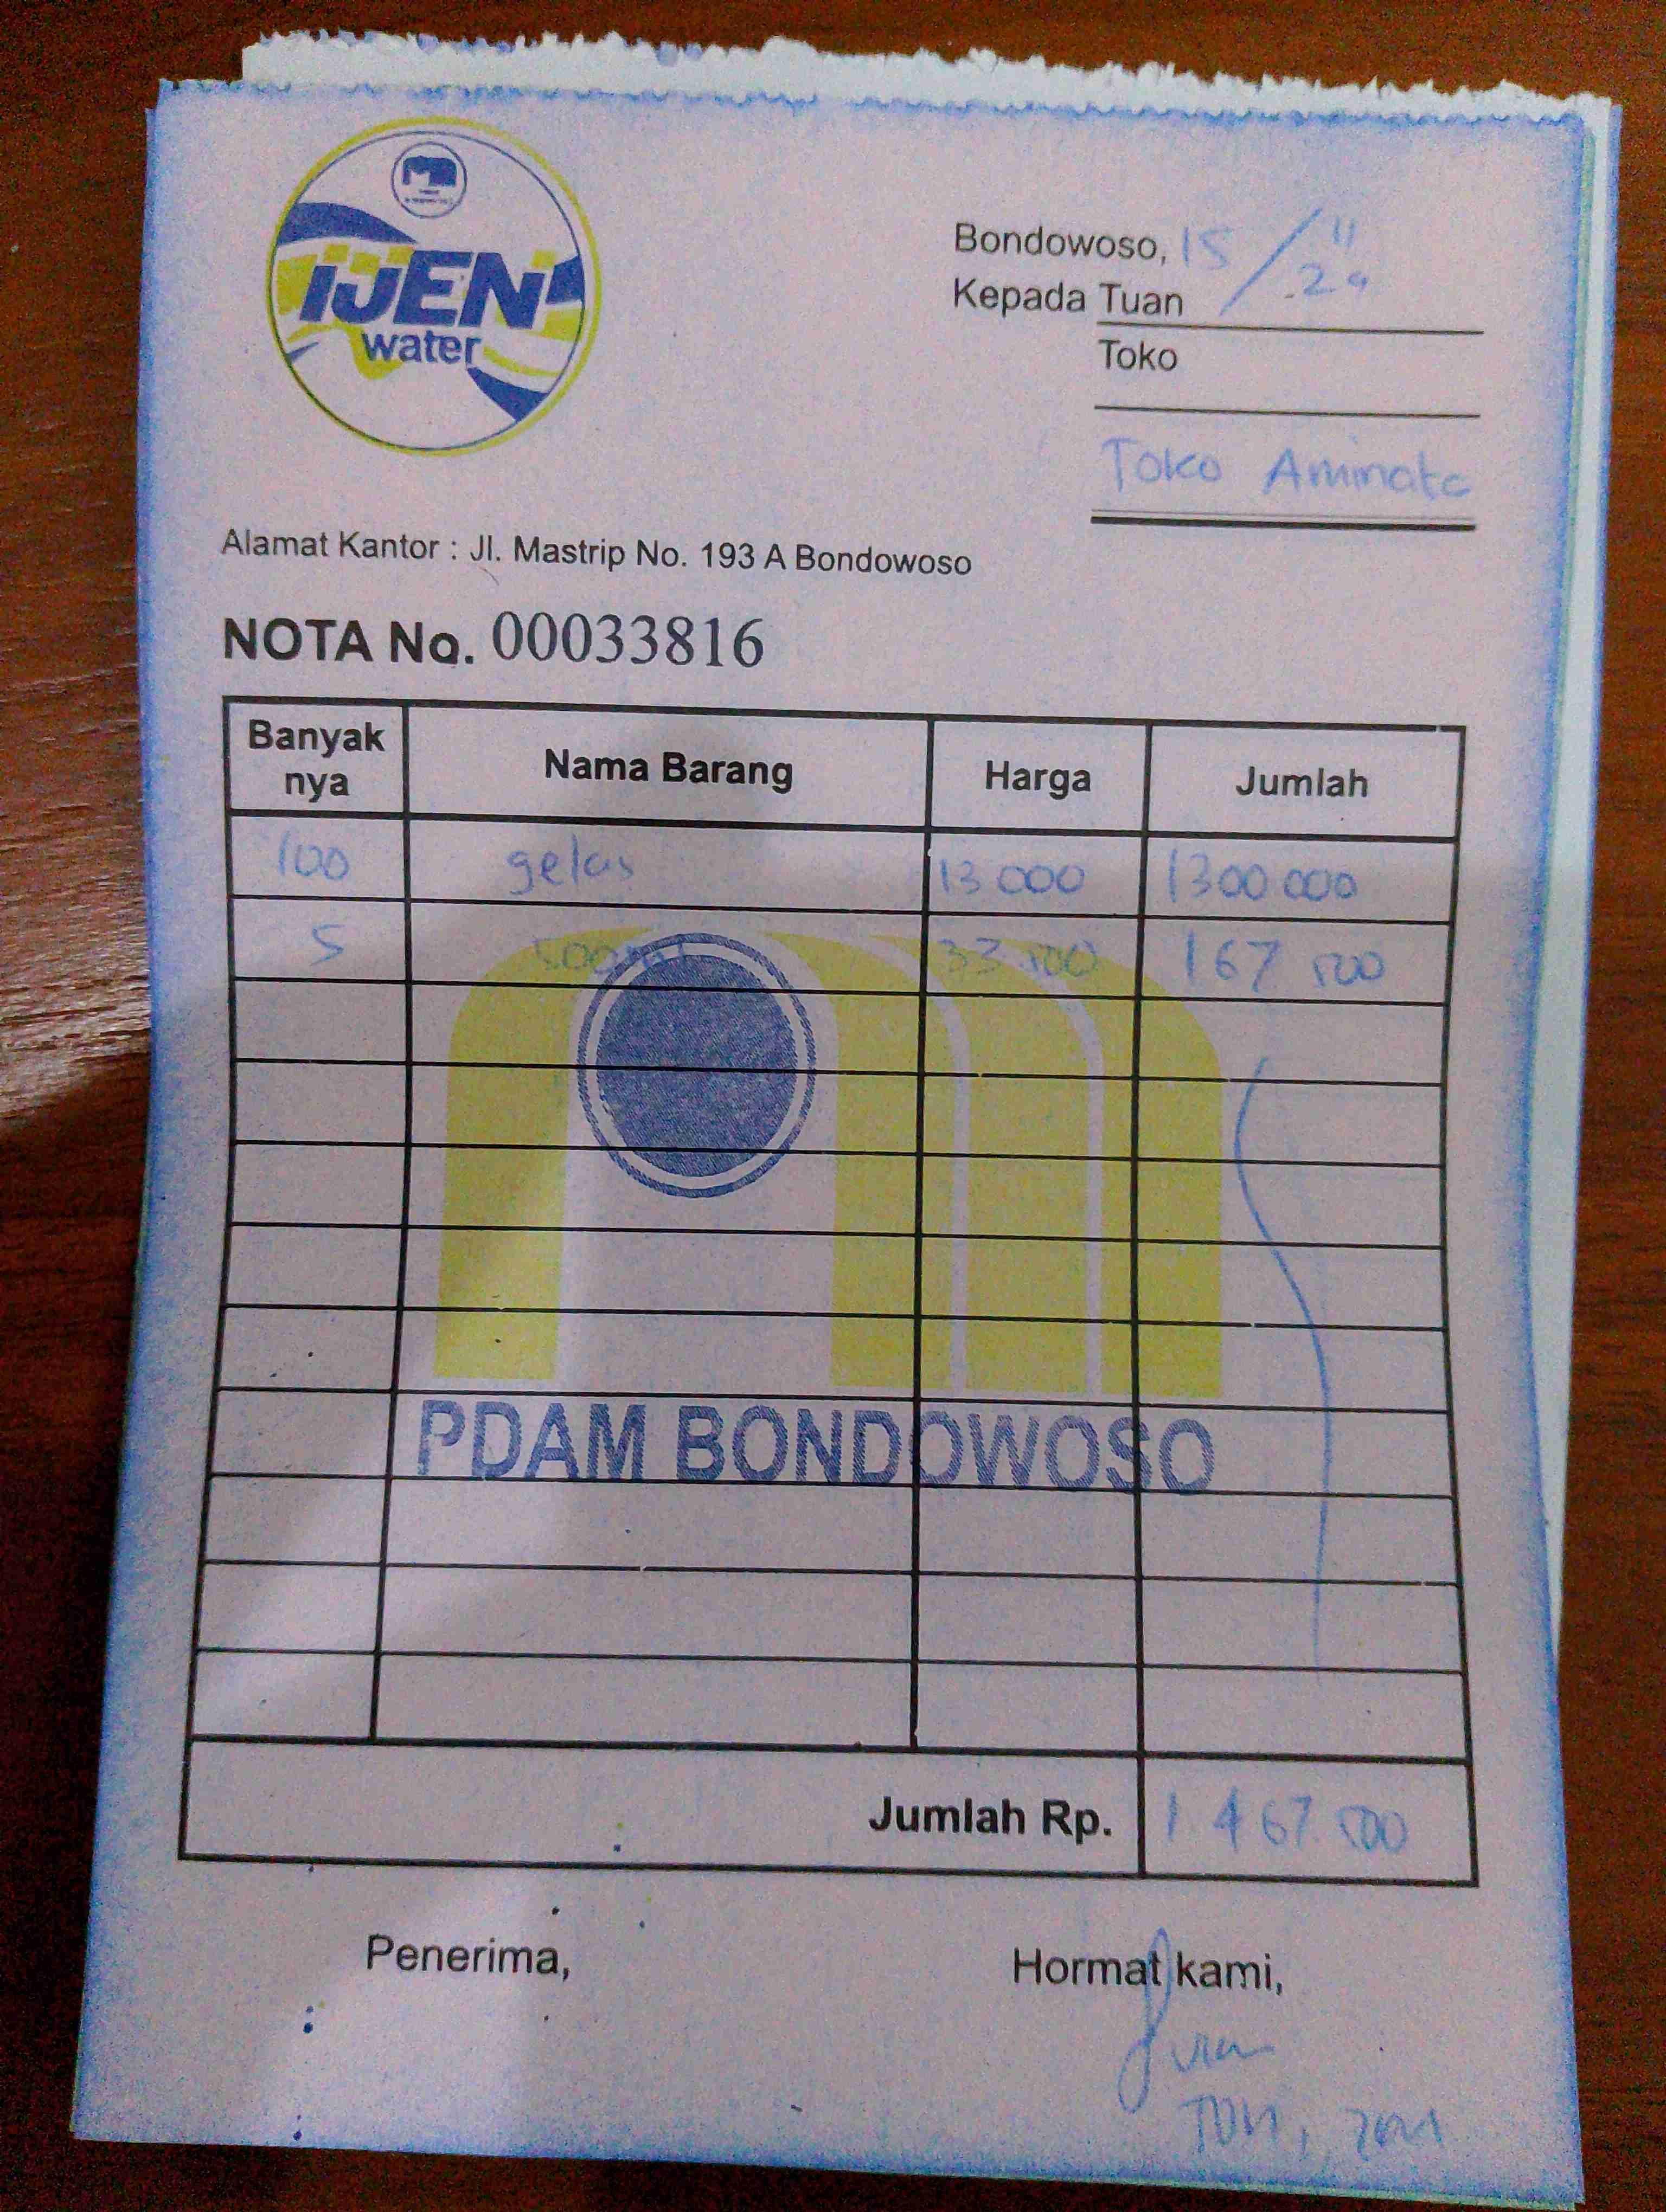 IJEN
water
Bondowoso, 15 / 11
Kepada Tuan
Toko
Toko
Alamat Kantor : Jl. Mastrip No. 193 A Bondowoso
NOTA No. 00033816
Banyak nya Nama Barang Harga Jumlah
100 gelas 13 000 1300 000
5 500 ml 33.500 167 500
PDAM BONDOWOSO
Jumlah Rp. 1 467.500
Penerima, Hormat kami,